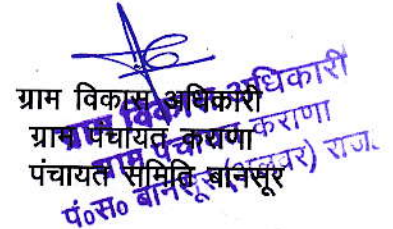 ग्राम विकास अधिकारी
ग्राम पंचायत कराणा
पंचायत समिति बानसूर
ग्राम विकास अधिकारी
ग्राम पंचायत कराणा
पं०स० बानसूर (अलवर) राज.